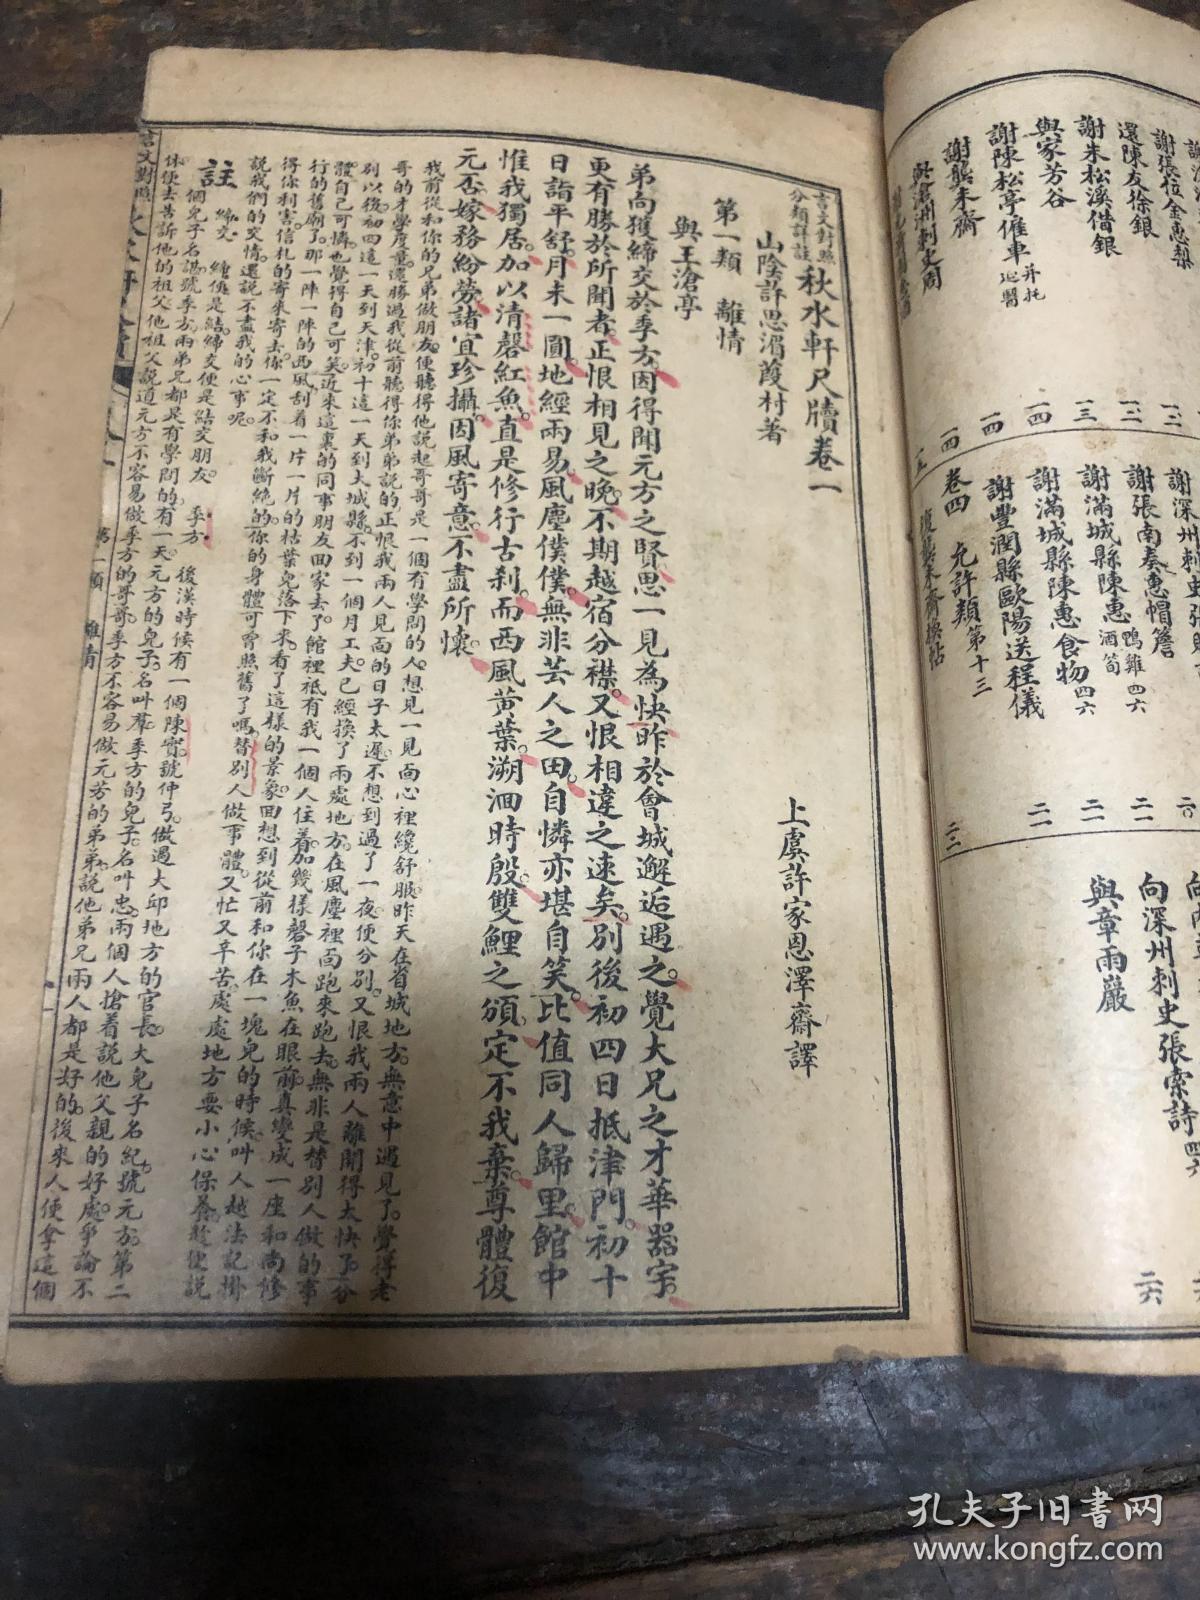 謝張位金惠梨
還陳友徐銀 一三
謝朱松溪借銀 一三
與家芳谷 一四
謝陳松亭催車 并托延醫 一四
謝龔未齋 一四
謝張南奏惠帽簷 二一
謝滿城縣陳惠 鴨雞酒筍 四六 二一
謝滿城縣陳惠食物 四六 二一
謝豐潤縣歐陽送程儀 二一
卷四 允許類 第十三
復龔未齋換帖 二二
向深州刺史張索詩 四六 二六
與章雨巖
言文對照
分類詳註 秋水軒尺牘卷一
山陰許思湄葭村著
上虞許家恩澤齋譯
第一類 離情
與王滄亭
弟向獲締交於季方。因得聞元方之賢。思一見為快。昨於會城邂逅遇之。覺大兄之才華器宇。
更有勝於所聞者。正恨相見之晚。不期越宿分襟。又恨相違之速矣。別後初四日抵津門。初十
日詣平舒。月未一圓。地經兩易。風塵僕僕。無非芸人之田。自憐亦堪自笑。比值同人歸里。館中
惟我獨居。加以清磬紅魚。直是修行古刹。而西風黃葉。溯洄時殷。雙鯉之頒。定不我棄。尊體復
元否。嫁務紛勞。諸宜珍攝。因風寄意。不盡所懷。
我前從和你的兄弟做朋友。便聽得他說起哥哥是一個有學問的人。想見一見面心裡纔舒服。昨天在省城地方。無意中遇見了。覺得老
哥的才學度量。還勝過我從前聽得你弟弟說的。正恨我兩人見面的日子太遲。不想到過了一夜。便分別。又恨我兩人離開得太快了。分
別以後。初四這一天到天津。初十這一天到大城縣。不到一個月工夫。已經換了兩處地方。在風塵裡面跑來跑去。無非是替別人做的事
體。自己可憐。也覺得自己可笑。近來這裏的同事朋友回家去了。館裡祇有我一個人住着。加幾樣磬子木魚在眼前。真變成一座和尚修
行的舊廟了。那一陣一陣的西風。刮着一片一片的枯葉兒落下來。看了這樣的景象。回想到從前和你在一塊兒的時候。叫人越法記掛
得你利害。信札的寄來寄去。你一定不和我斷絕的。你的身體可曾照舊了嗎。替別人做事體。又忙又辛苦。處處地方要小心保養。趁便說
說我們的交情。還說不盡我的心事呢。
註 締交 締便是結。締交便是結交朋友。 季方 後漢時候有一個陳實。號仲弓。做過大邱地方的官長。大兒子名紀。號元方。第二
個兒子名諶。號季方。兩弟兄都是有學問的。有一天。元方的兒子。名叫羣。季方的兒子。名叫忠。兩個人搶着說他父親的好處。爭論不
休。便去告訴他的祖父。他祖父說道。元方不容易做季方的哥哥。季方不容易做元芳的弟弟。說他弟兄兩人都是好的。後來人便拿這個
言文對照
第一類 離情
一
孔夫子旧书网
www.kongfz.com